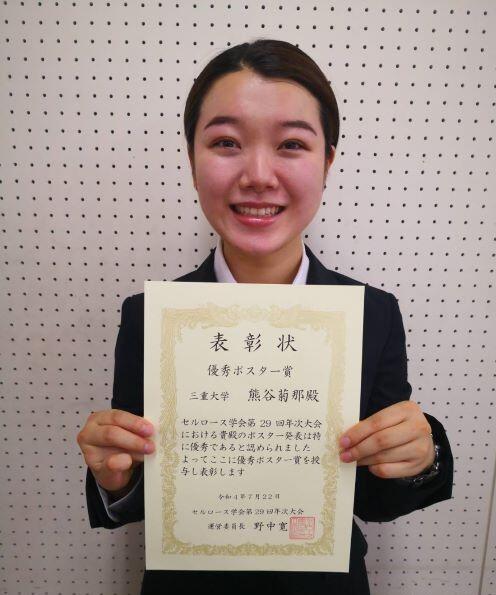 表彰状
優秀ポスター賞
三重大学 熊谷菊那殿
セルロース学会第29回年次大会
における貴殿のポスター発表は特
に優秀であると認められました
よってここに優秀ポスター賞を授
与し表彰します
令和4年7月22日
セルロース学会第29回年次大会
運営委員長 野中寛